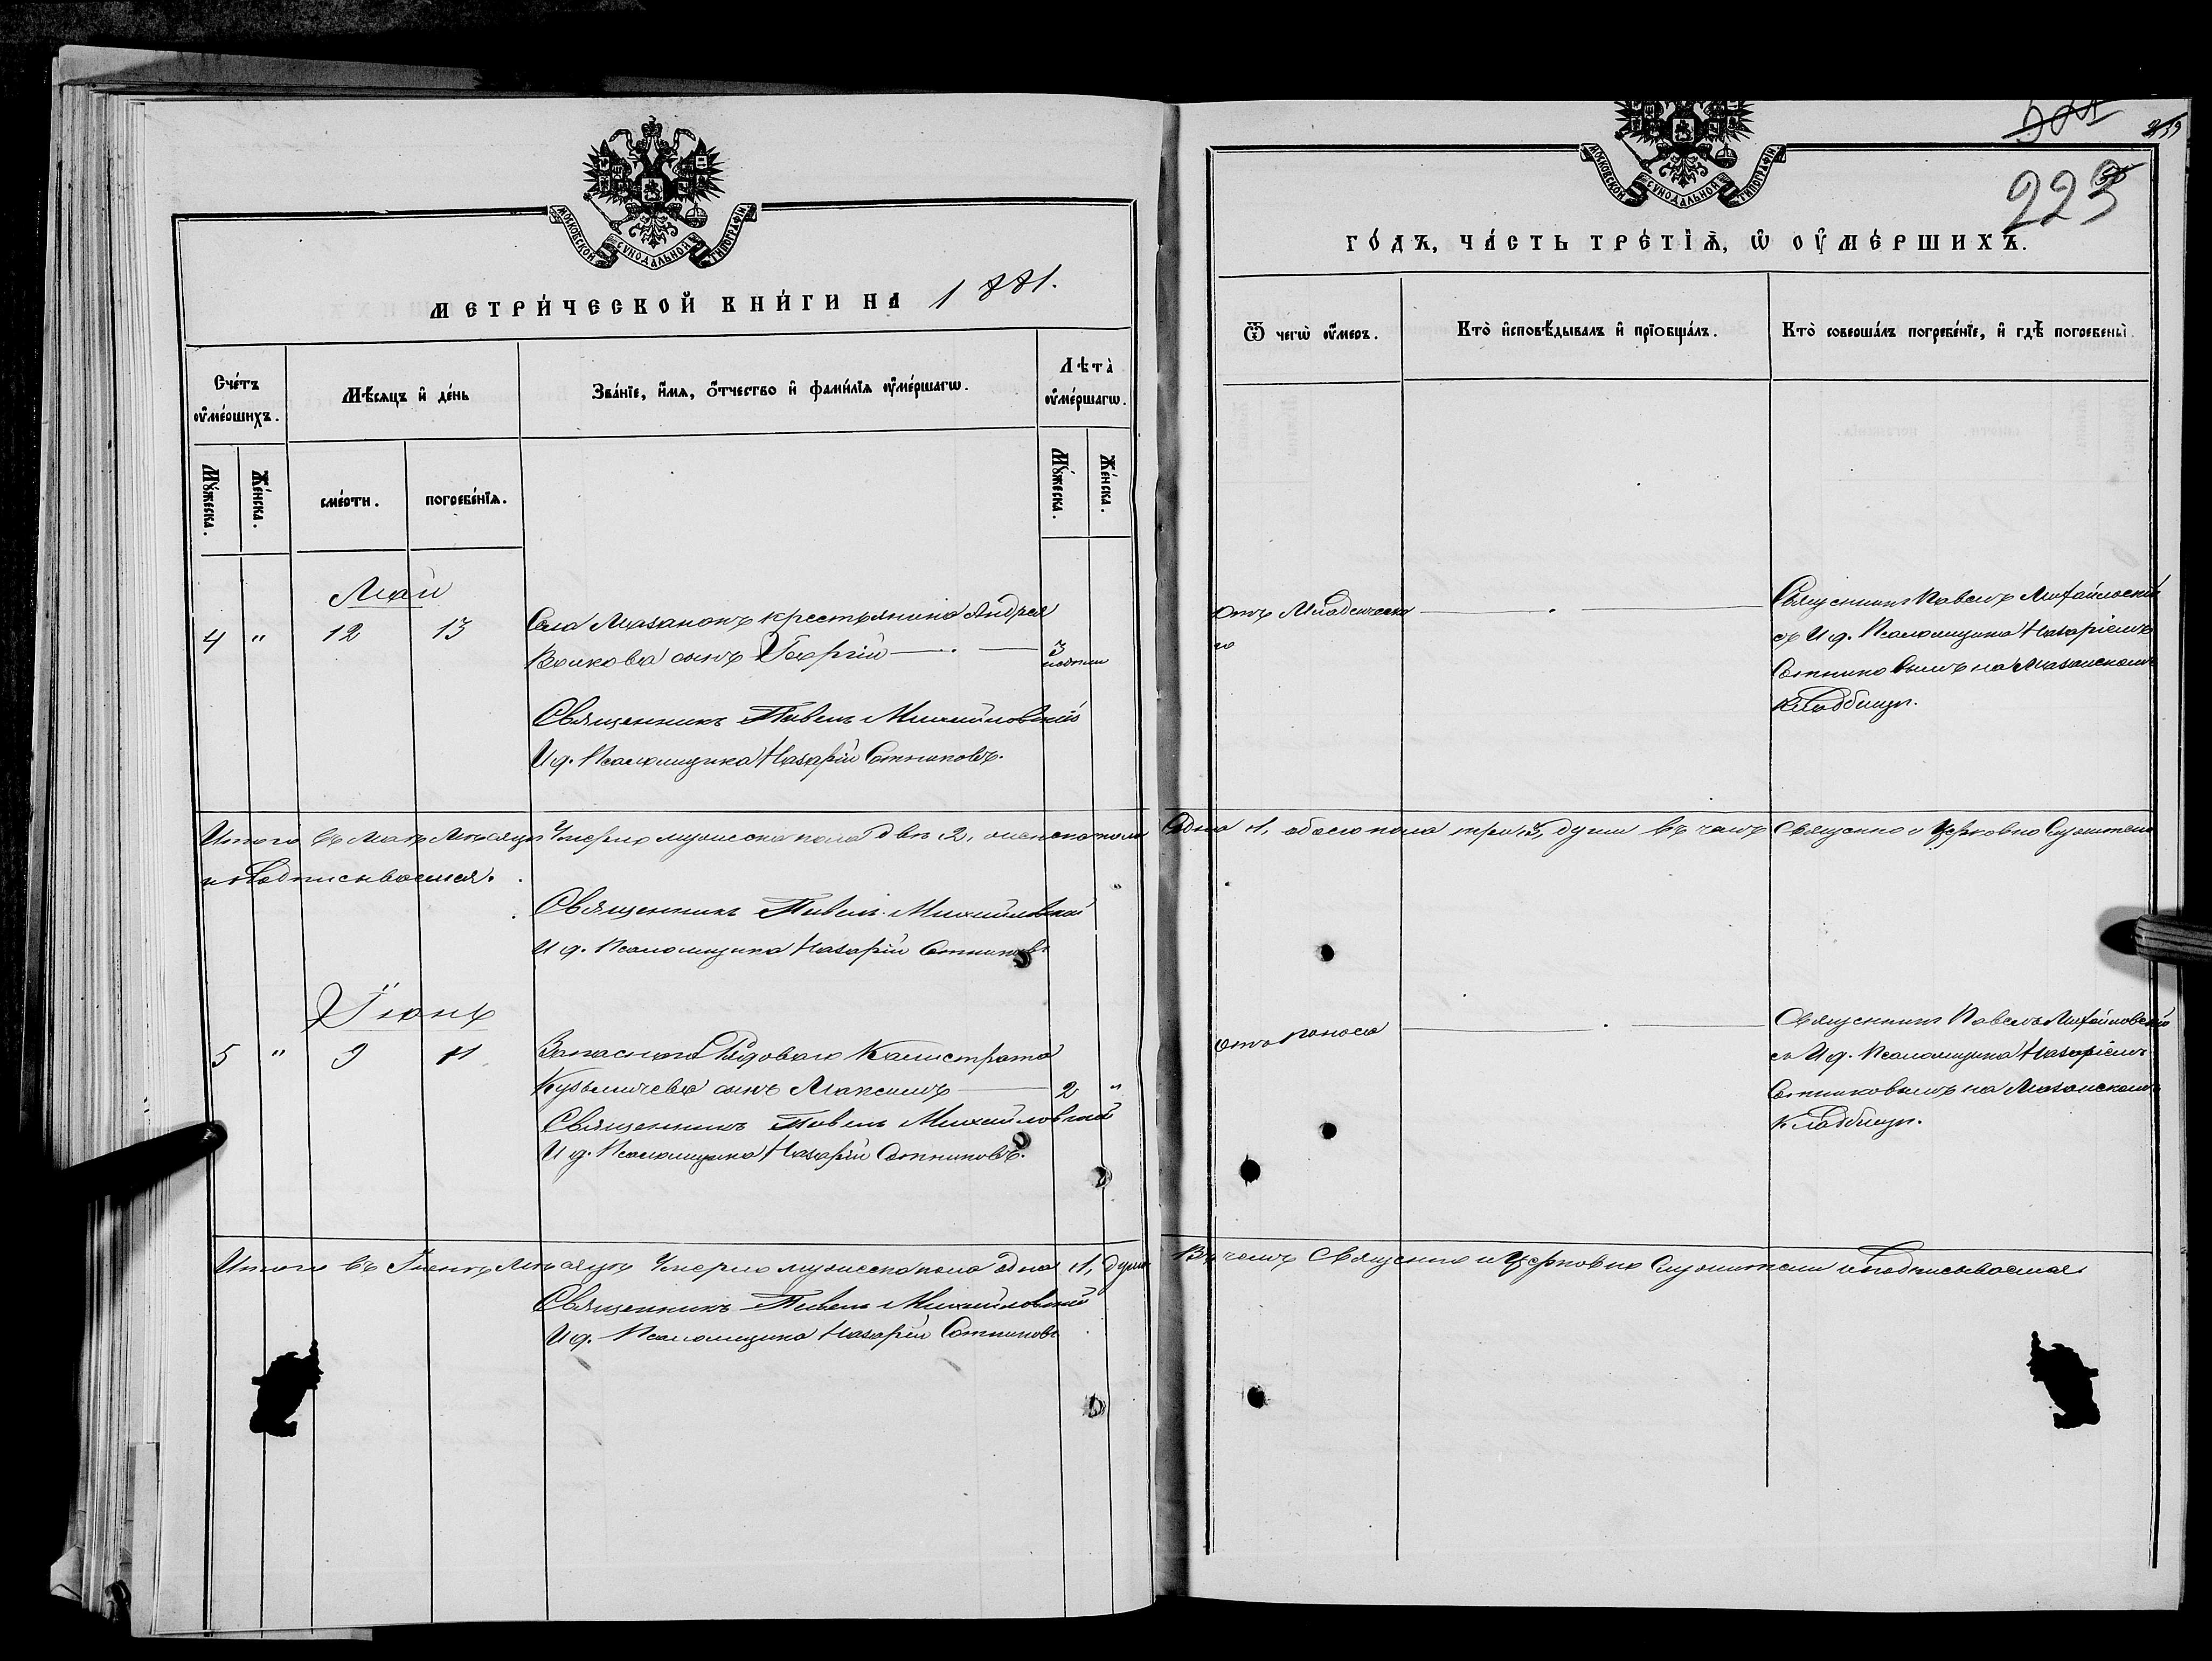 МОСКОВСКОЙ СѴНОДАЛЬНОЙ ТИПОГРАФІИ
МЕТРИ́ЧЕСКОЙ КНИ́ГИ НА 1881.
Сче́тъ ᲂу҆ме́ршихъ.
Мѣ́сяцъ и҆ де́нь
Зва́нїе, и҆́мѧ, ѻ҆́тчество и҆ фами́лїѧ ᲂу҆ме́ршагѡ.
Лѣта̀ ᲂу҆ме́ршагѡ.
Мꙋ́жеска.
Же́нска.
сме́рти.
погребе́нїѧ.
Мꙋ́жеска.
Же́нска.
Май
4 " 12 13 Села Мазанокъ крестьянина Андрея
Волкова сынъ Георгій 3 недели
Священникъ Павелъ Михайловскій
И д. Псаломщика Назарій Сотниковъ.
Итого въ Маѣ Мѣсяцѣ Умерло мужеска пола двѣ 2, женска пола
и подписываемся.
Священникъ Павелъ Михайловскій
И д. Псаломщика Назарій Сотниковъ
Іюнь
5 " 9 11 Запаснаго Рядоваго Калистрата
Кузьмичева сынъ Максимъ 2 "
Священникъ Павелъ Михайловскій
И д. Псаломщика Назарій Сотниковъ.
Итого въ Іюнѣ Мѣсяцѣ Умерло мужеска пола одна 1, душа
Священникъ Павелъ Михайловскій
И д. Псаломщика Назарій Сотниковъ
МОСКОВСКОЙ СѴНОДАЛЬНОЙ ТИПОГРАФІИ
223
ГО́ДЪ, ЧА́СТЬ ТРЕ́ТЇѦ, Ѡ҆ ОУ҆МЕ́РШИХЪ.
Ѿ чегѡ̀ ᲂу҆́меръ.
Кто̀ и҆сповѣ́дывалъ и҆ прїобща́лъ.
Кто̀ соверша́лъ погребе́нїе, и҆ гдѣ̀ погребены̀.
отъ Младенческа
го
Священникъ Павелъ Михайловскій
съ И д. Псаломщика Назаріемъ
Сотниковымъ на Мазанскомъ
кладбищѣ.
Одна 1, обоего пола три, 3, души въ чемъ Священно и Церковно Служители
отъ поноса
Священникъ Павелъ Михайловскій
съ И д. Псаломщика Назаріемъ
Сотниковымъ на Мазанскомъ
кладбищѣ.
Въ чемъ Священно и Церковно Служители и подписываемся